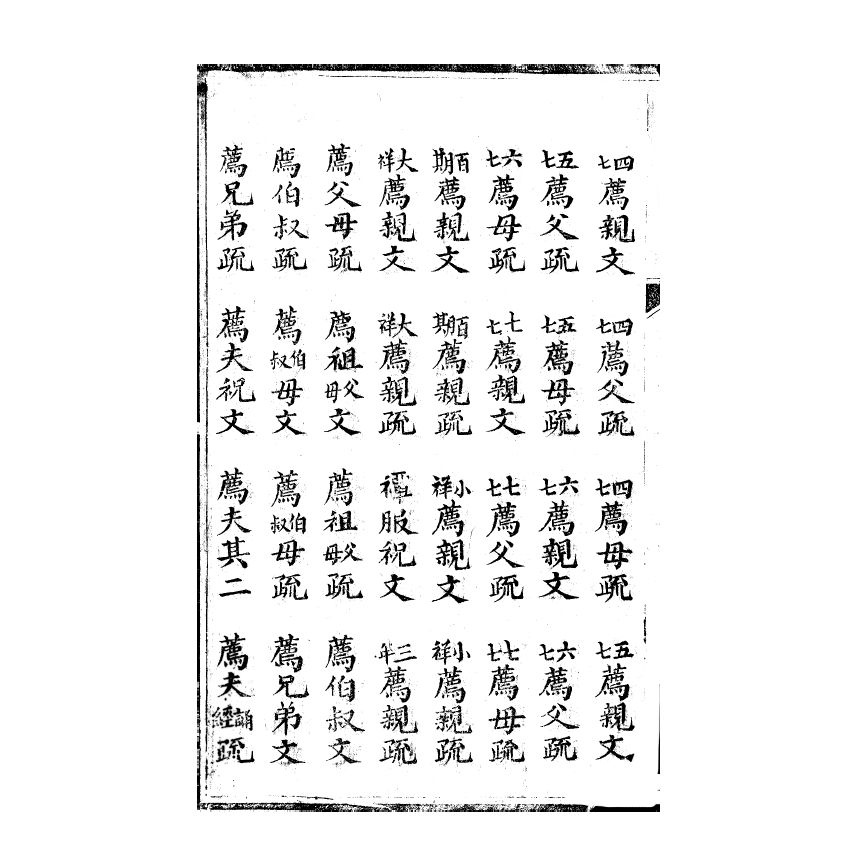 四七薦親文　四七薦父疏　四七薦母疏　五七薦親文
五七薦父疏　五七薦母疏　六七薦親文　六七薦父疏
六七薦母疏　七七薦親文　七七薦父疏　七七薦母疏
百期薦親文　百期薦親疏　小祥薦親文　小祥薦親疏
大祥薦親文　大祥薦親疏　禫服祝文　三年薦親疏
薦父母疏　薦祖父母文　薦祖父母疏　薦伯叔文
薦伯叔疏　薦伯叔母文　薦伯叔母疏　薦兄弟文
薦兄弟疏　薦夫祝文　薦夫其二　薦夫誦經疏